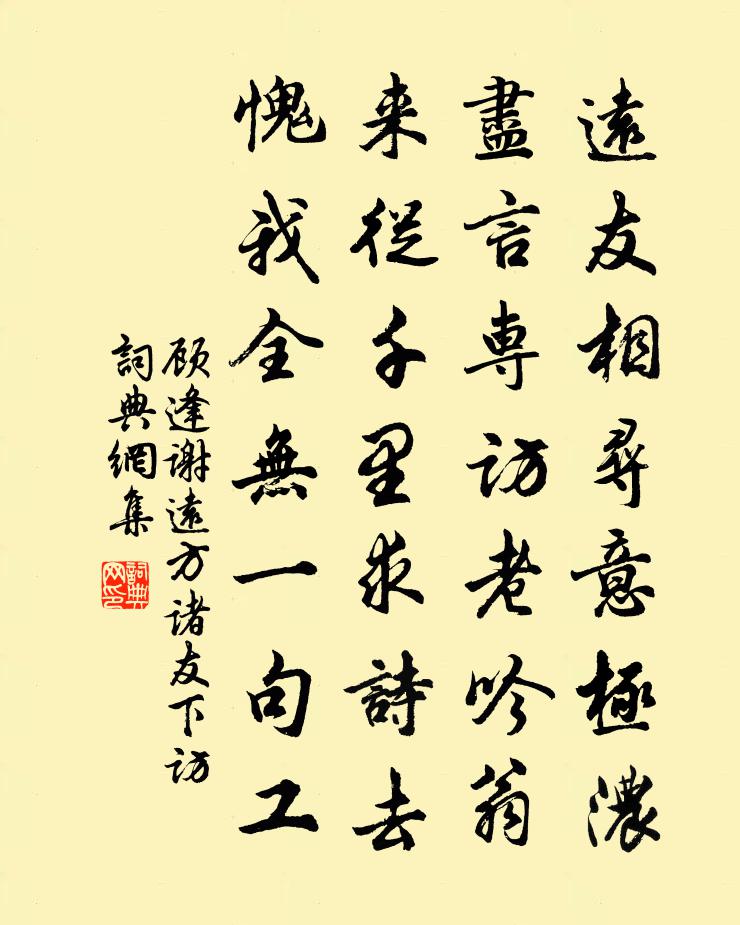 遠友相尋意極濃
盡言専訪老吟翁
来從千里求詩去
愧我全無一句工
顾逢谢遠方诸友下访
詞典網集
詞典网印